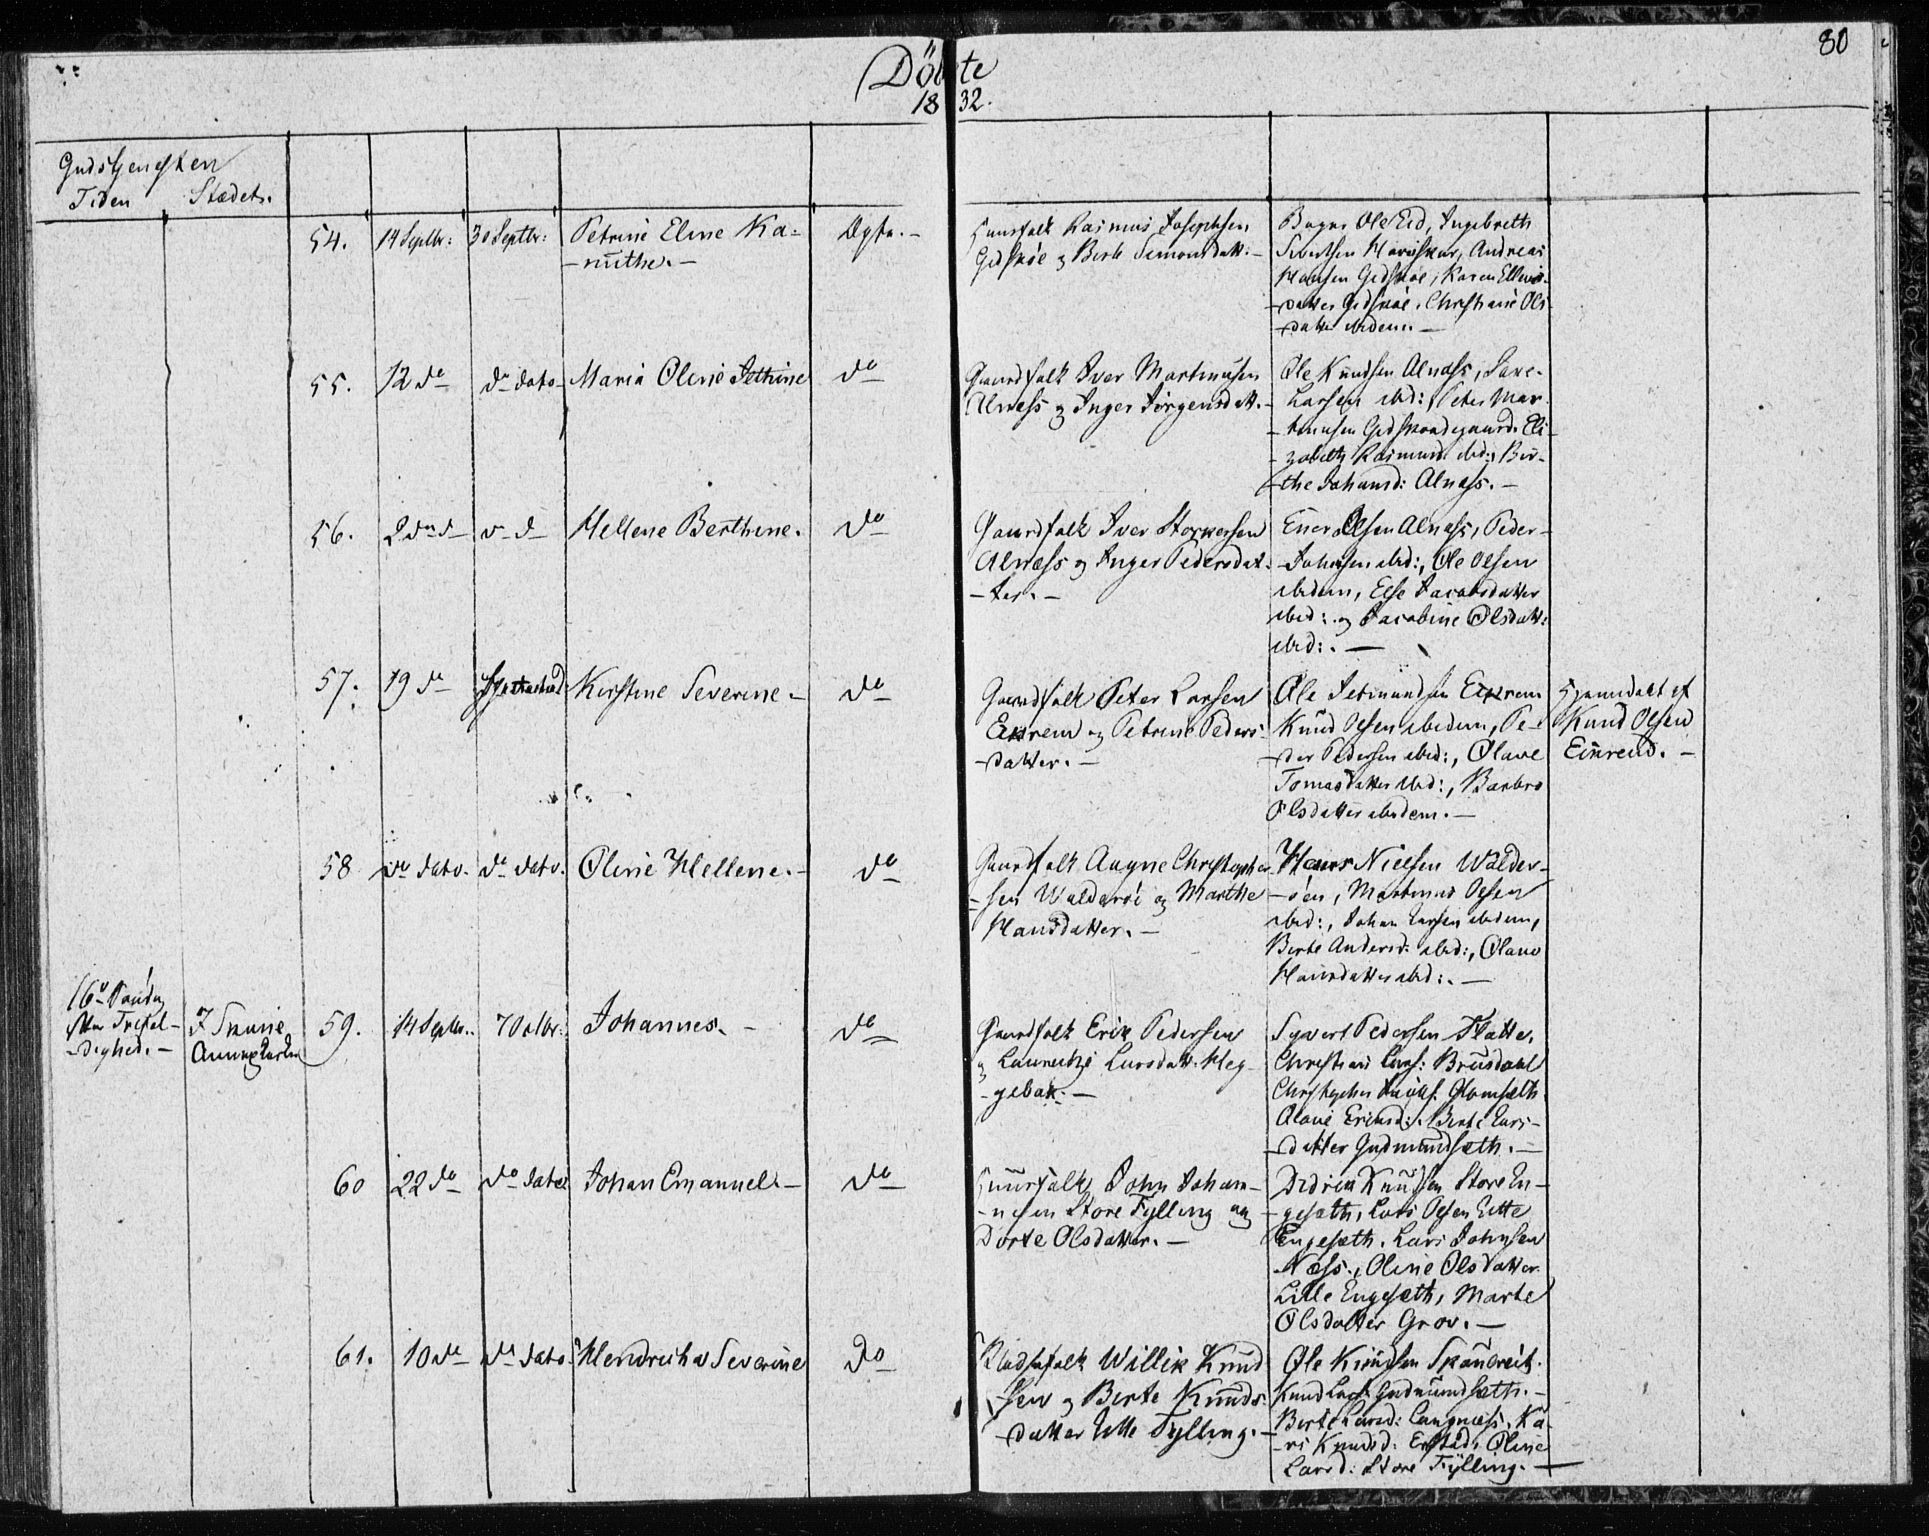 80
Döbte
1832.
Gudstjenesten
Tiden Stædet.
54. 14 Septbr: 30 Septbr: Petrine Eline Ka-
-nuthe.-
Ægte.-
Huusfolk Rasmus Josephsen
Gidskøe og Berte Simonsdatt:-
Baguer Ole Eid, Ingebreth
Sivertsen
Hansen Gidskøe, Karen
-datter Gidskøe, Christiane Ols-
-datter ibidem.-
55. 12 do do dato Maria Oline Jethrine do
Gaardfolk Iver Martinusen
Alness og Inger Jørgensdatt.-
Ole Knudsen Alness, Lars-
Larsen ibid:, Peter Mar-
-tinusen Gidskeodegaard, Eli-
-zabeth Rasmusd. ibid:, Ber-
-the Johansd: Alness.-
56. 2 do d- d- Hellene Berthine. do
Gaardfolk Iver Storkersen
Alness og Inger Pedersdat-
-ter.-
Olsen Alness, Peder-
-Johnsen ibid:, Ole Olsen
ibidem, Else Jacobsdatter
ibid: og Jacobine Olsdatt:
ibid:.-
57. 19 do Kirstine Severine- do
Gaardfolk Peter Larsen
Eikrem og Petrine Peders-
-datter.-
Ole Jetmundsen Eikrem
Knud Olsen ibidem, Pe-
-der Pedersen ibid:, Olave
Tomasdatter ibid:, Barbro
Olsdatter ibidem.-
Hjemmedøbt af
Knud Olsen
Eikrem.-
58 do dato. do dato. Oline Hellene.- do
Gaardfolk Aagne Christopher-
-sen Walderøe og Marthe
Hansdatter.-
Hans Nielsen Walder-
-øen, Martinus Olsen
ibid:, Johan Larsen ibidem,
Berte Andersd: ibid:, Olave
Hansdatter ibid:.-
16de Søndag
efter Trefol-
-dighed.-
I Skouie
Annexkirke
59. 14 Septbr. 7 Octbr: Johannes.- do
Gaardfolk Erik Pedersen
og Lauretze Larsdatt: Heg-
-gebak.-
Syvert Pedersen Flatte,
Christian Lars: Brusdahl
Christopher Glomsæth
Olave Eriksd:, Berte Lars-
-datter Gudmundsæth.-
60 22 do do dato Johan Emanuel.- do
Huusfolk John Johan-
-nesen Store Fylling og
Dorte Olsdatter.-
Didrik Knudsen Store En-
-gesæth, Lars Olsen Litle
Engesæth, Lars Johnsen
Næss., Oline Olsdatter
Lille Engesæth, Marte
Olsdatter Grov.-
61. 10 do do dato Hendrikha Severine do
Pladsfolk Willik Knud-
sen og Berte Knuds-
-datter Litle Fylling.-
Ole Knudsen Skouereit.
Knud Lars: Gudmundsæth.-
Berte Larsd: Langness, Ka-
-ri Knudsd: Erstad, Oline
Larsd: Store Fylling.-